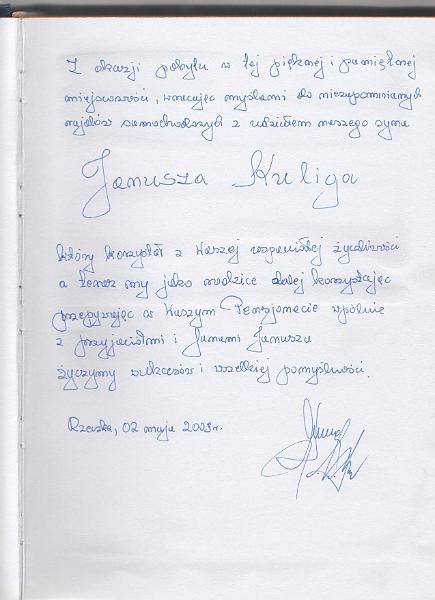 Z okazji pobytu w tej pięknej i pamiętnej
miejscowości, wracając myślami do niezapomnianych
rajdów samochodowych z udziałem naszego syna
Janusza Kuliga
który korzystał z Waszej wspaniałej życzliwości
a teraz my jako rodzice dalej korzystając
przebywając w Waszym Pensjonacie wspólnie
z przyjaciółmi i fanami Janusza
życzymy sukcesów i wszelkiej pomyślności.
Rzeczka, 02 maja 2009r.